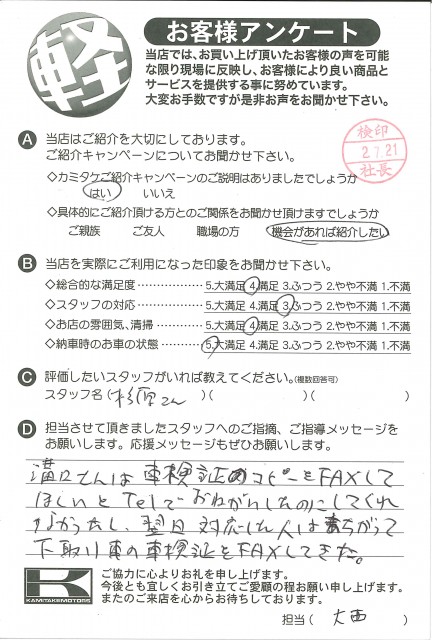 軽
お客様アンケート
当店では、お買い上げ頂いたお客様の声を可能
な限り現場に反映し、お客様により良い商品と
サービスを提供する事に努めています。
大変お手数ですが是非お声をお聞かせ下さい。
A 当店はご紹介を大切にしております。
ご紹介キャンペーンについてお聞かせ下さい。
検印
27.21
社長
◇カミタケご紹介キャンペーンのご説明はありましたでしょうか
はい いいえ
◇具体的にご紹介頂ける方とのご関係をお聞かせ頂けますでしょうか
ご親族 ご友人 職場の方 機会があれば紹介したい
B 当店を実際にご利用になった印象をお聞かせ下さい。
◇総合的な満足度 5.大満足 4.満足 3.ふつう 2.やや不満 1.不満
◇スタッフの対応 5.大満足 4.満足 3.ふつう 2.やや不満 1.不満
◇お店の雰囲気、清掃 5.大満足 4.満足 3.ふつう 2.やや不満 1.不満
◇納車時のお車の状態 5.大満足 4.満足 3.ふつう 2.やや不満 1.不満
C 評価したいスタッフがいれば教えてください。(複数回答可)
スタッフ名(杉原さん)( )( )
D 担当させて頂きましたスタッフへのご指摘、ご指導メッセージを
お願いします。応援メッセージもぜひお願いします。
溝口さんは車検証のコピーをFAXして
ほしいとTelでおねがいしたのにしてくれ
なかったし、翌日対応した人はまちがって
下取り車の車検証をFAXしてきた。
KAMITAKEMOTORS
ご協力に心よりお礼を申し上げます。
今後とも宜しくお引き立てご愛顧の程お願い申し上げます。
またのご来店を心からお待ちしております。
担当( 大西 )